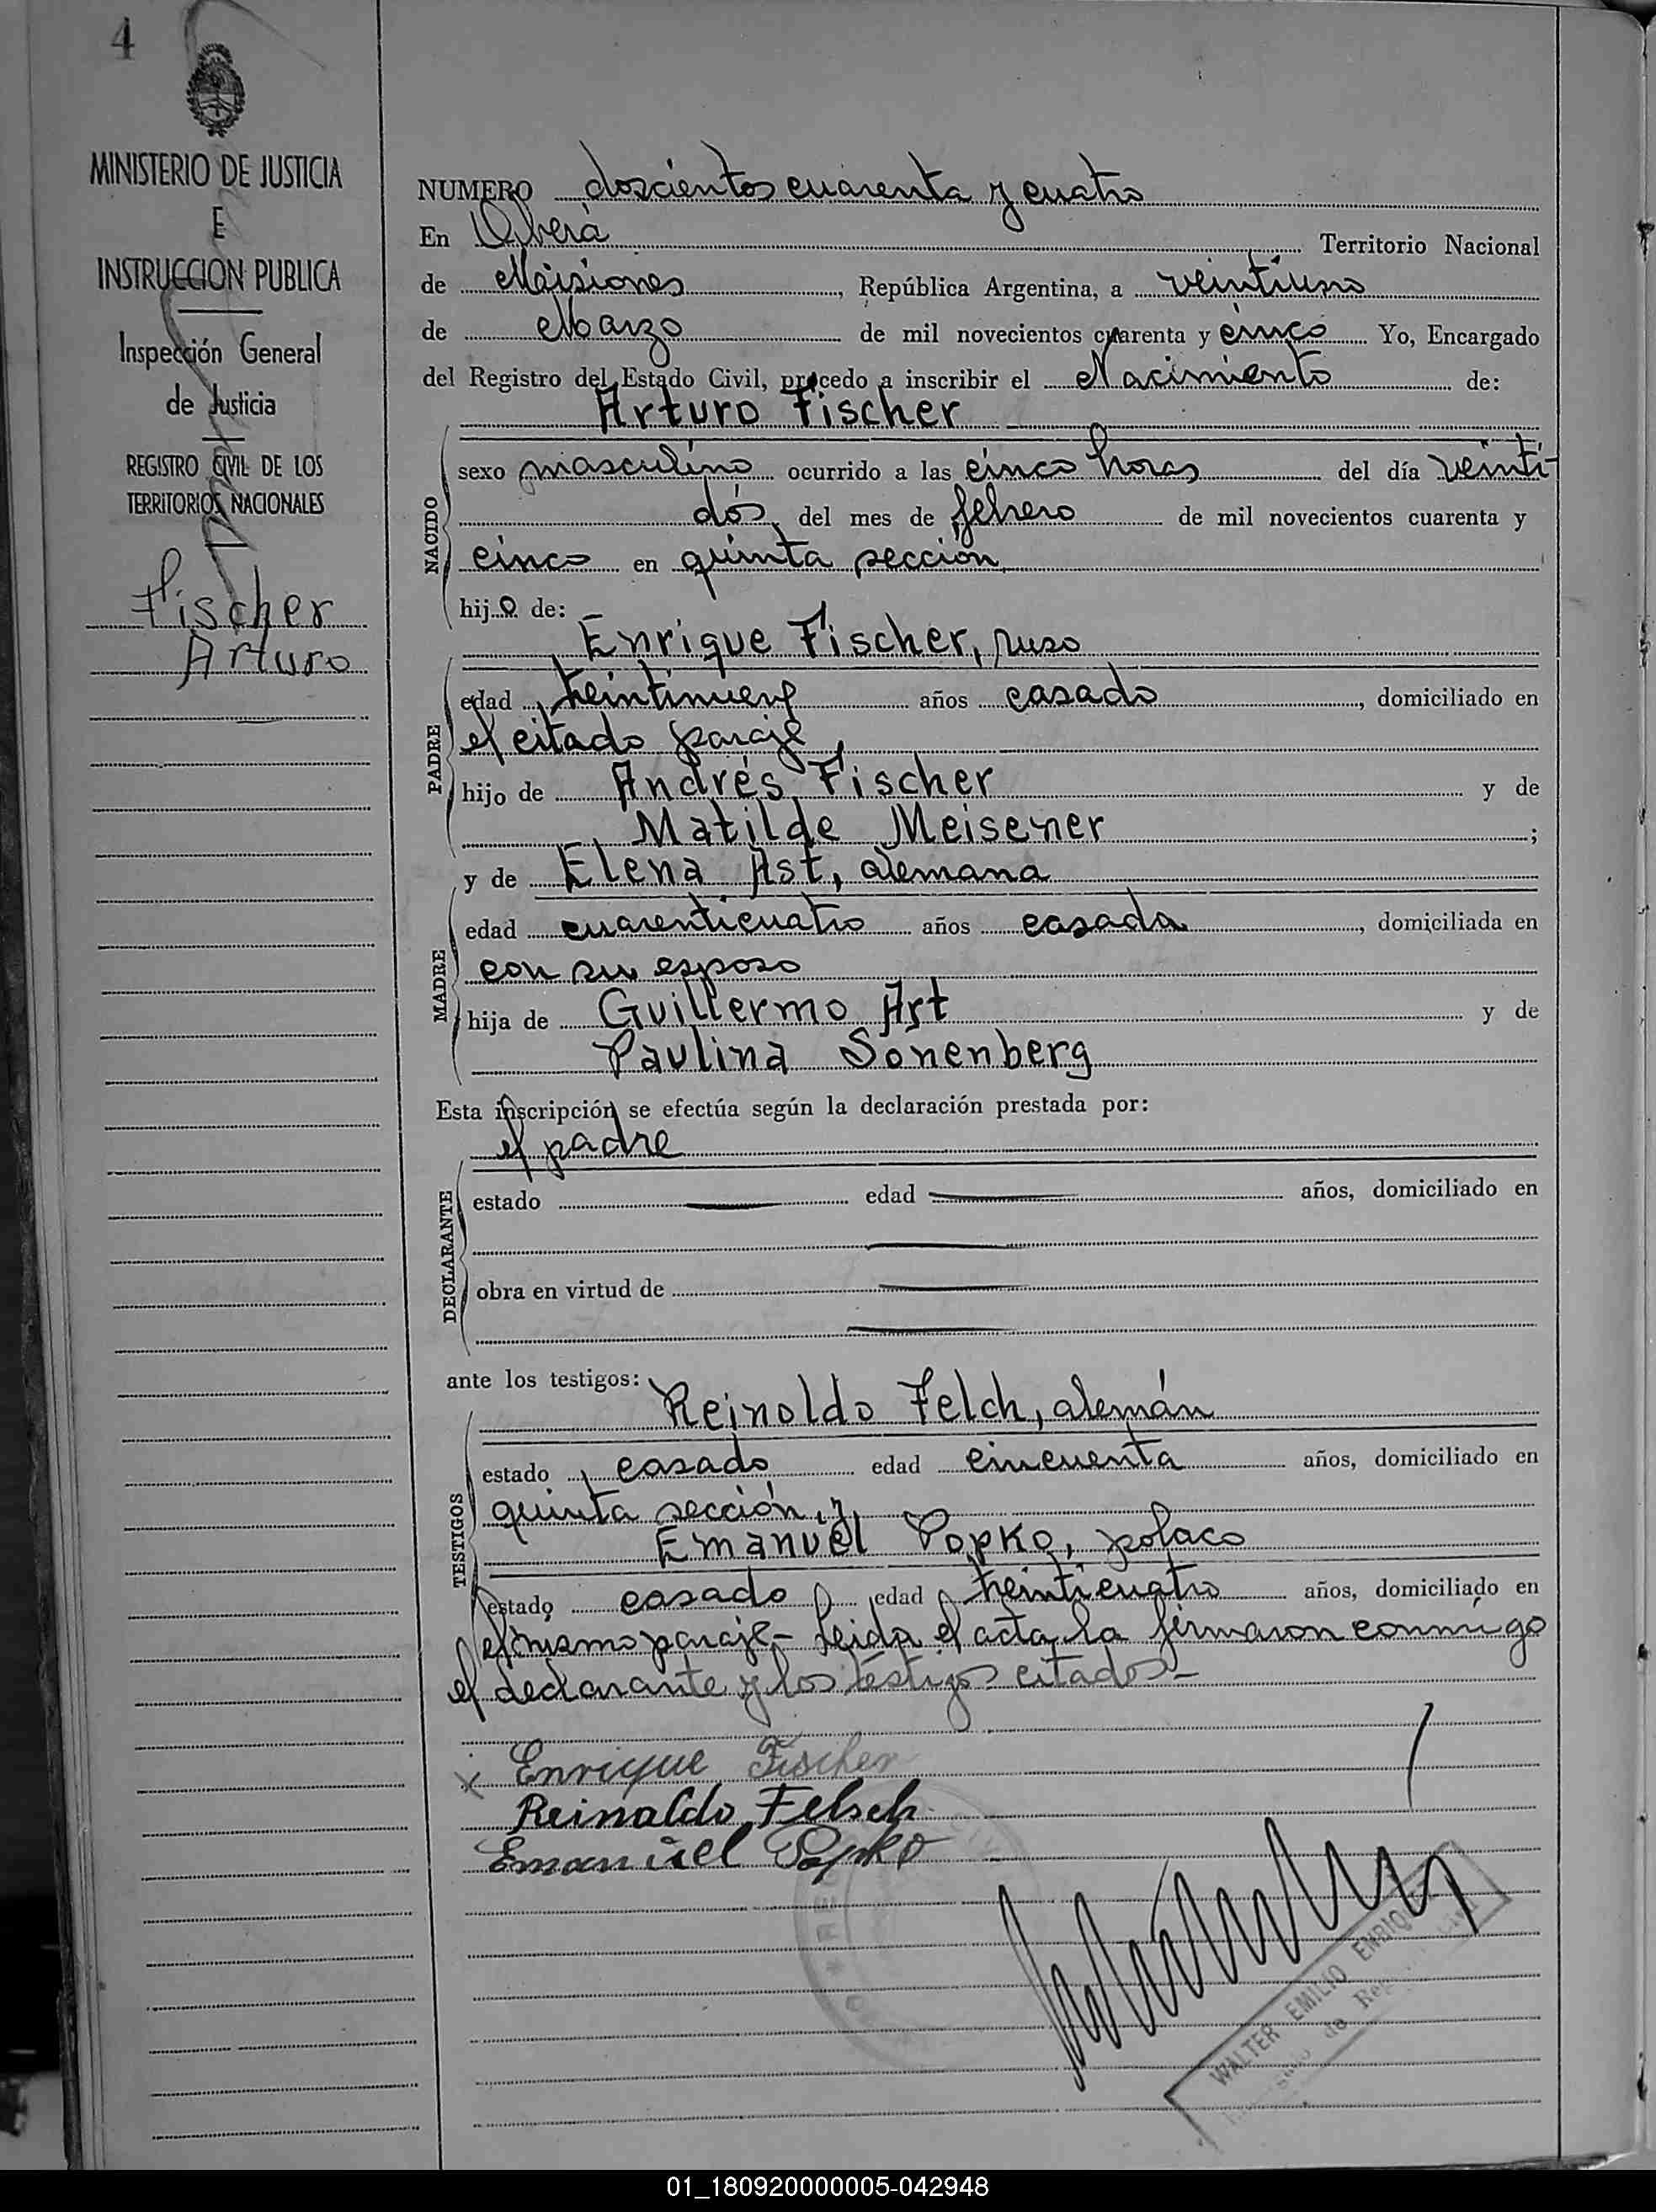 4
MINISTERIO DE JUSTICIA
E
INSTRUCCION PUBLICA
Inspección General
de Justicia
REGISTRO CIVIL DE LOS
TERRITORIOS NACIONALES
Fischer
Arturo
NUMERO doscientos cuarenta y cuatro
En Oberá Territorio Nacional
de Misiones, República Argentina, a veintiuno
de Marzo de mil novecientos cuarenta y cinco Yo, Encargado
del Registro del Estado Civil, procedo a inscribir el Nacimiento de:
Arturo Fischer
NACIDO
sexo masculino ocurrido a las cinco horas del día veinti-
dós, del mes de febrero de mil novecientos cuarenta y
cinco en quinta sección
hijo de:
Enrique Fischer, ruso
PADRE
edad treintinueve años casado, domiciliado en
el citado paraje,
hijo de Andrés Fischer y de
Matilde Meisener;
y de Elena Ast, alemana
MADRE
edad cuarenticuatro años casada, domiciliada en
con su esposo
hija de Guillermo Ast y de
Paulina Sonenberg
Esta inscripción se efectúa según la declaración prestada por:
el padre
DECLARANTE
estado edad años, domiciliado en
obra en virtud de
ante los testigos:
Reinoldo Felch, alemán
TESTIGOS
estado casado edad cincuenta años, domiciliado en
quinta sección, y
Emanuel Popko, polaco
estado casado edad treinticuatro años, domiciliado en
el mismo paraje.- Leida el acta la firmaron conmigo
el declarante y los testigos citados.-
x Enrique Fischer
Reinaldo Felsch
Emanuel Popko
WALTER EMILIO ENRIQUE
01_180920000005-042948